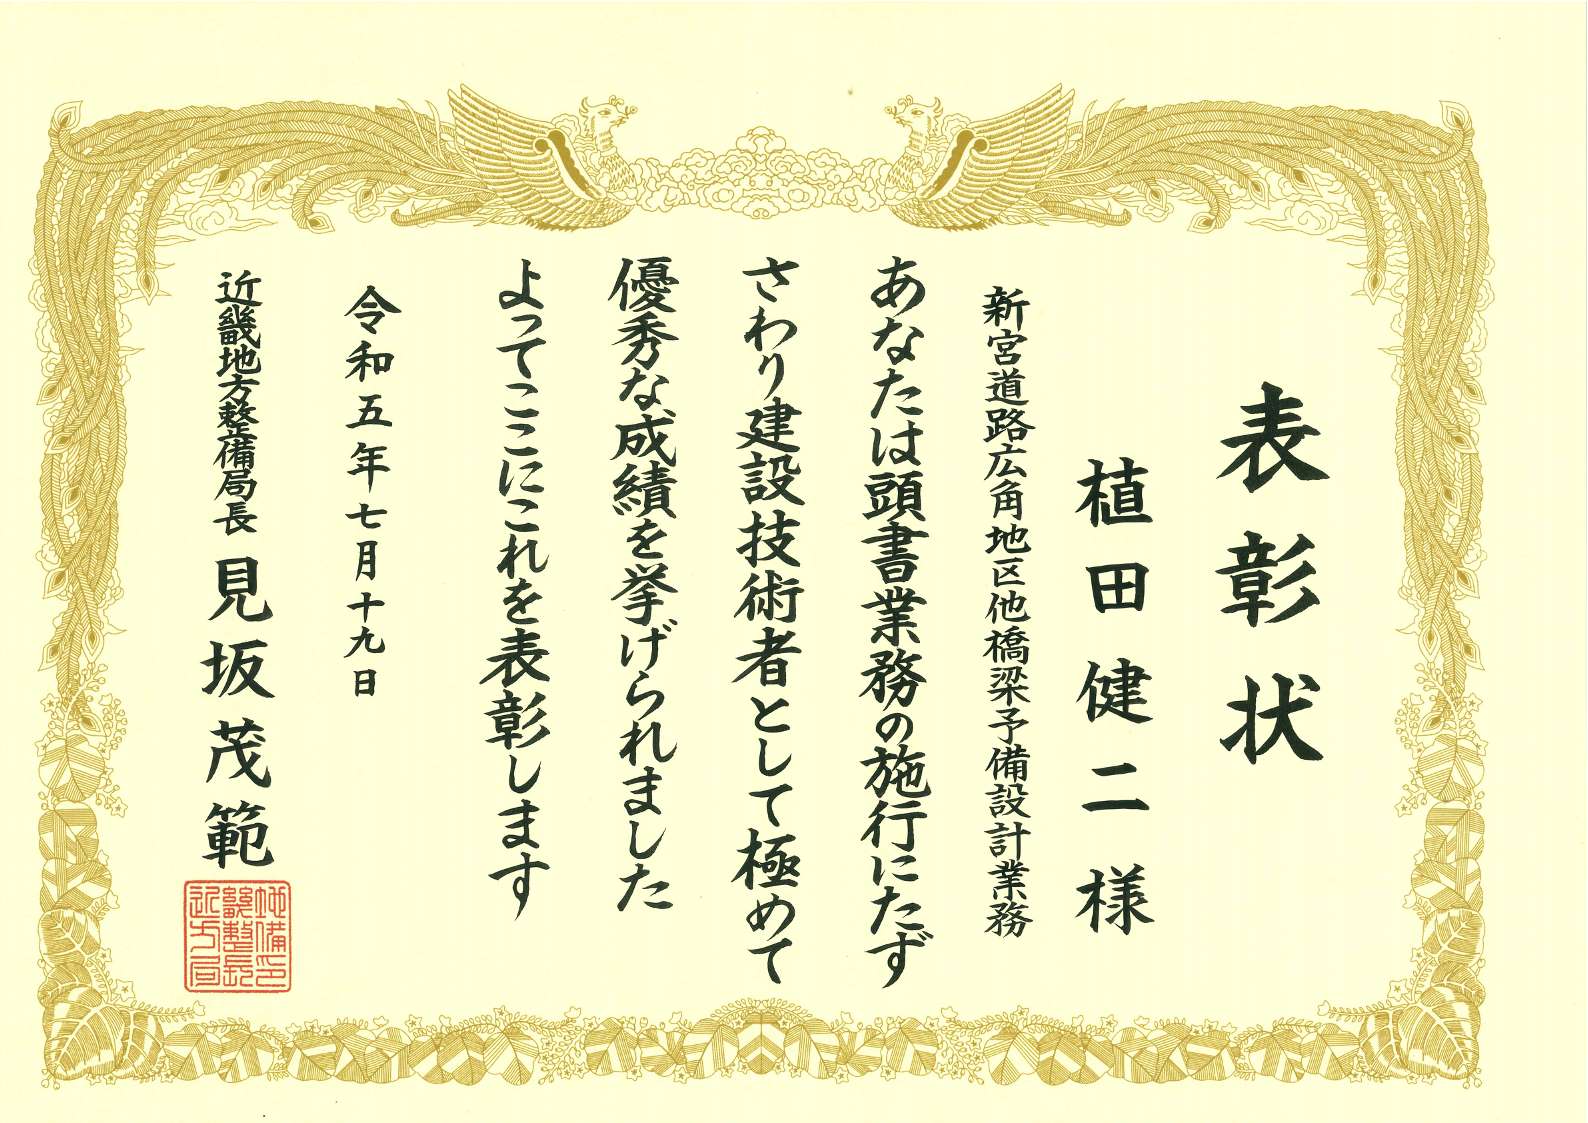 表彰状
植田健二様
新宮道路広角地区他橋梁予備設計業務
あなたは頭書業務の施行にたず
さわり建設技術者として極めて
優秀な成績を挙げられました
よってここにこれを表彰します
令和五年七月十九日
近畿地方整備局長 見坂茂範
近畿地方整備局長印